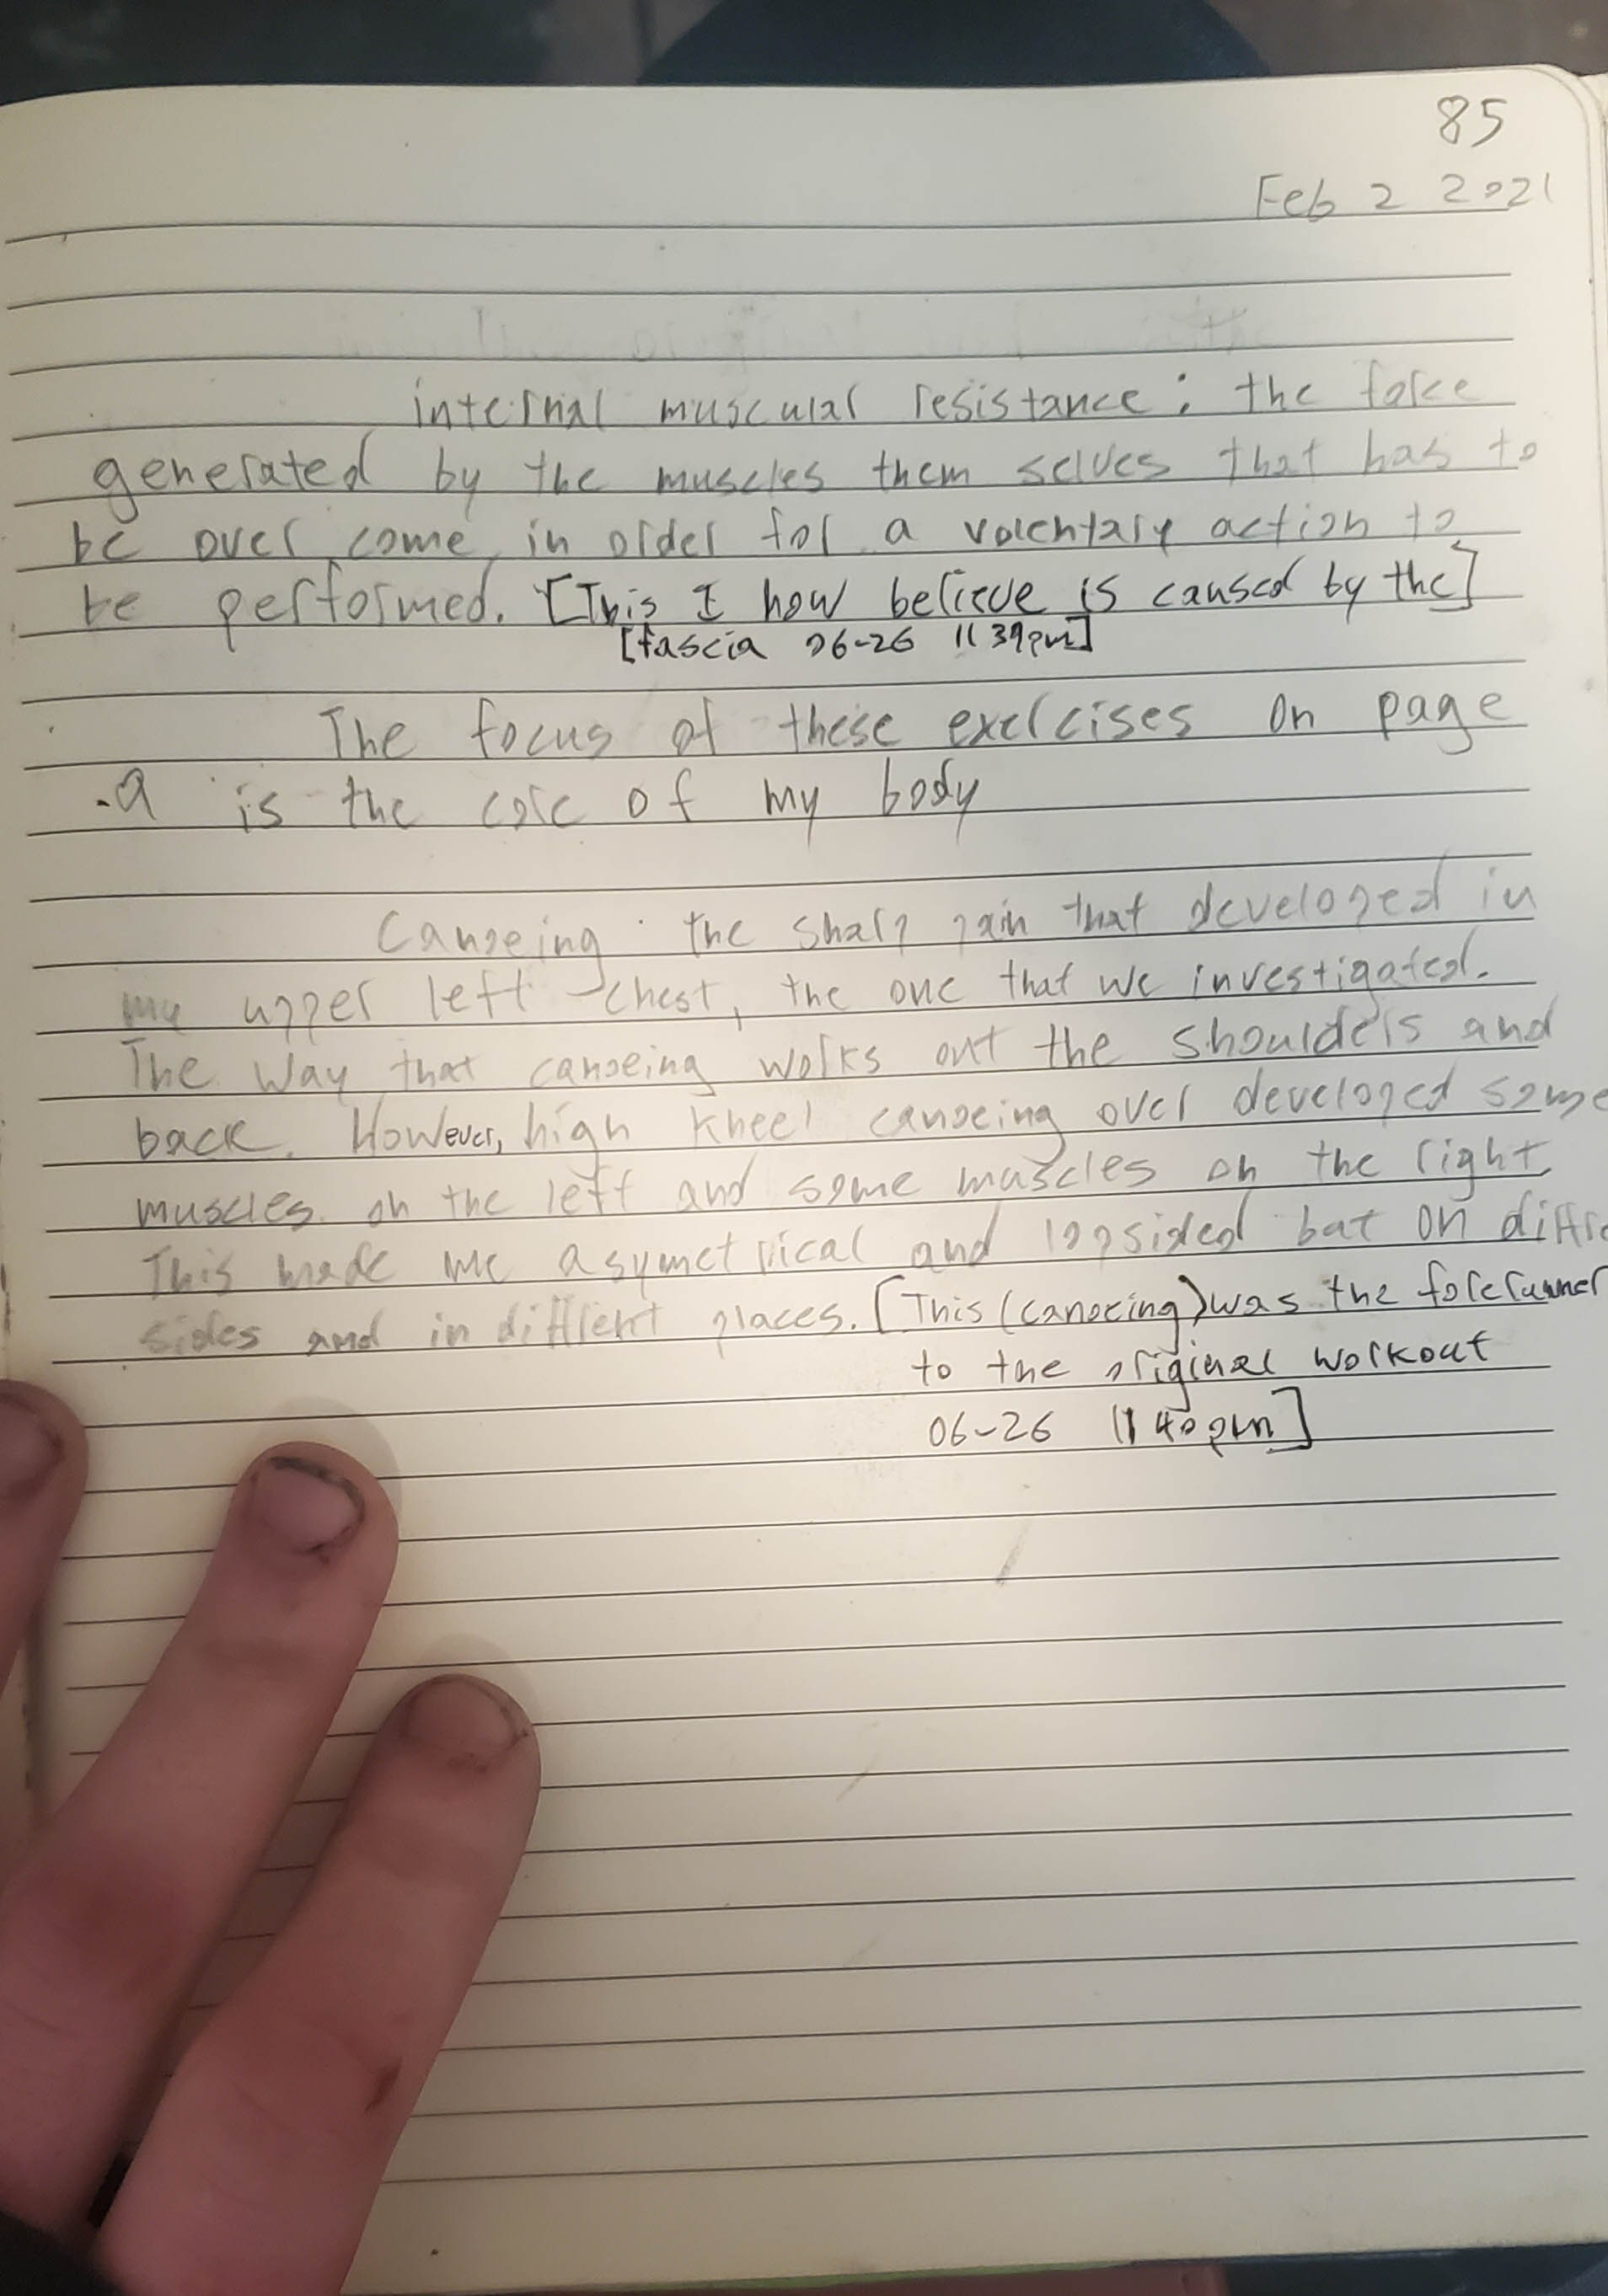 85
Feb 2 2021
internal muscular resistance: the force
generated by the muscles them selves that has to
be over come in order for a volentary action to
be performed. [This I now believe is caused by the]
[fascia 06-26 11 39pm]
The focus of these exercises on page
is the core of my body
Canoeing: the sharp pain that developed in
my upper left chest, the one that we investigated.
The way that canoeing works out the shoulders and
back. However, high kneel canoeing over developed some
muscles on the left and some muscles on the right
This made me asymetrical and lopsided but on
sides and in different places. [This (canoeing) was the forerunner
to the original workout
06-26 11 40pm]